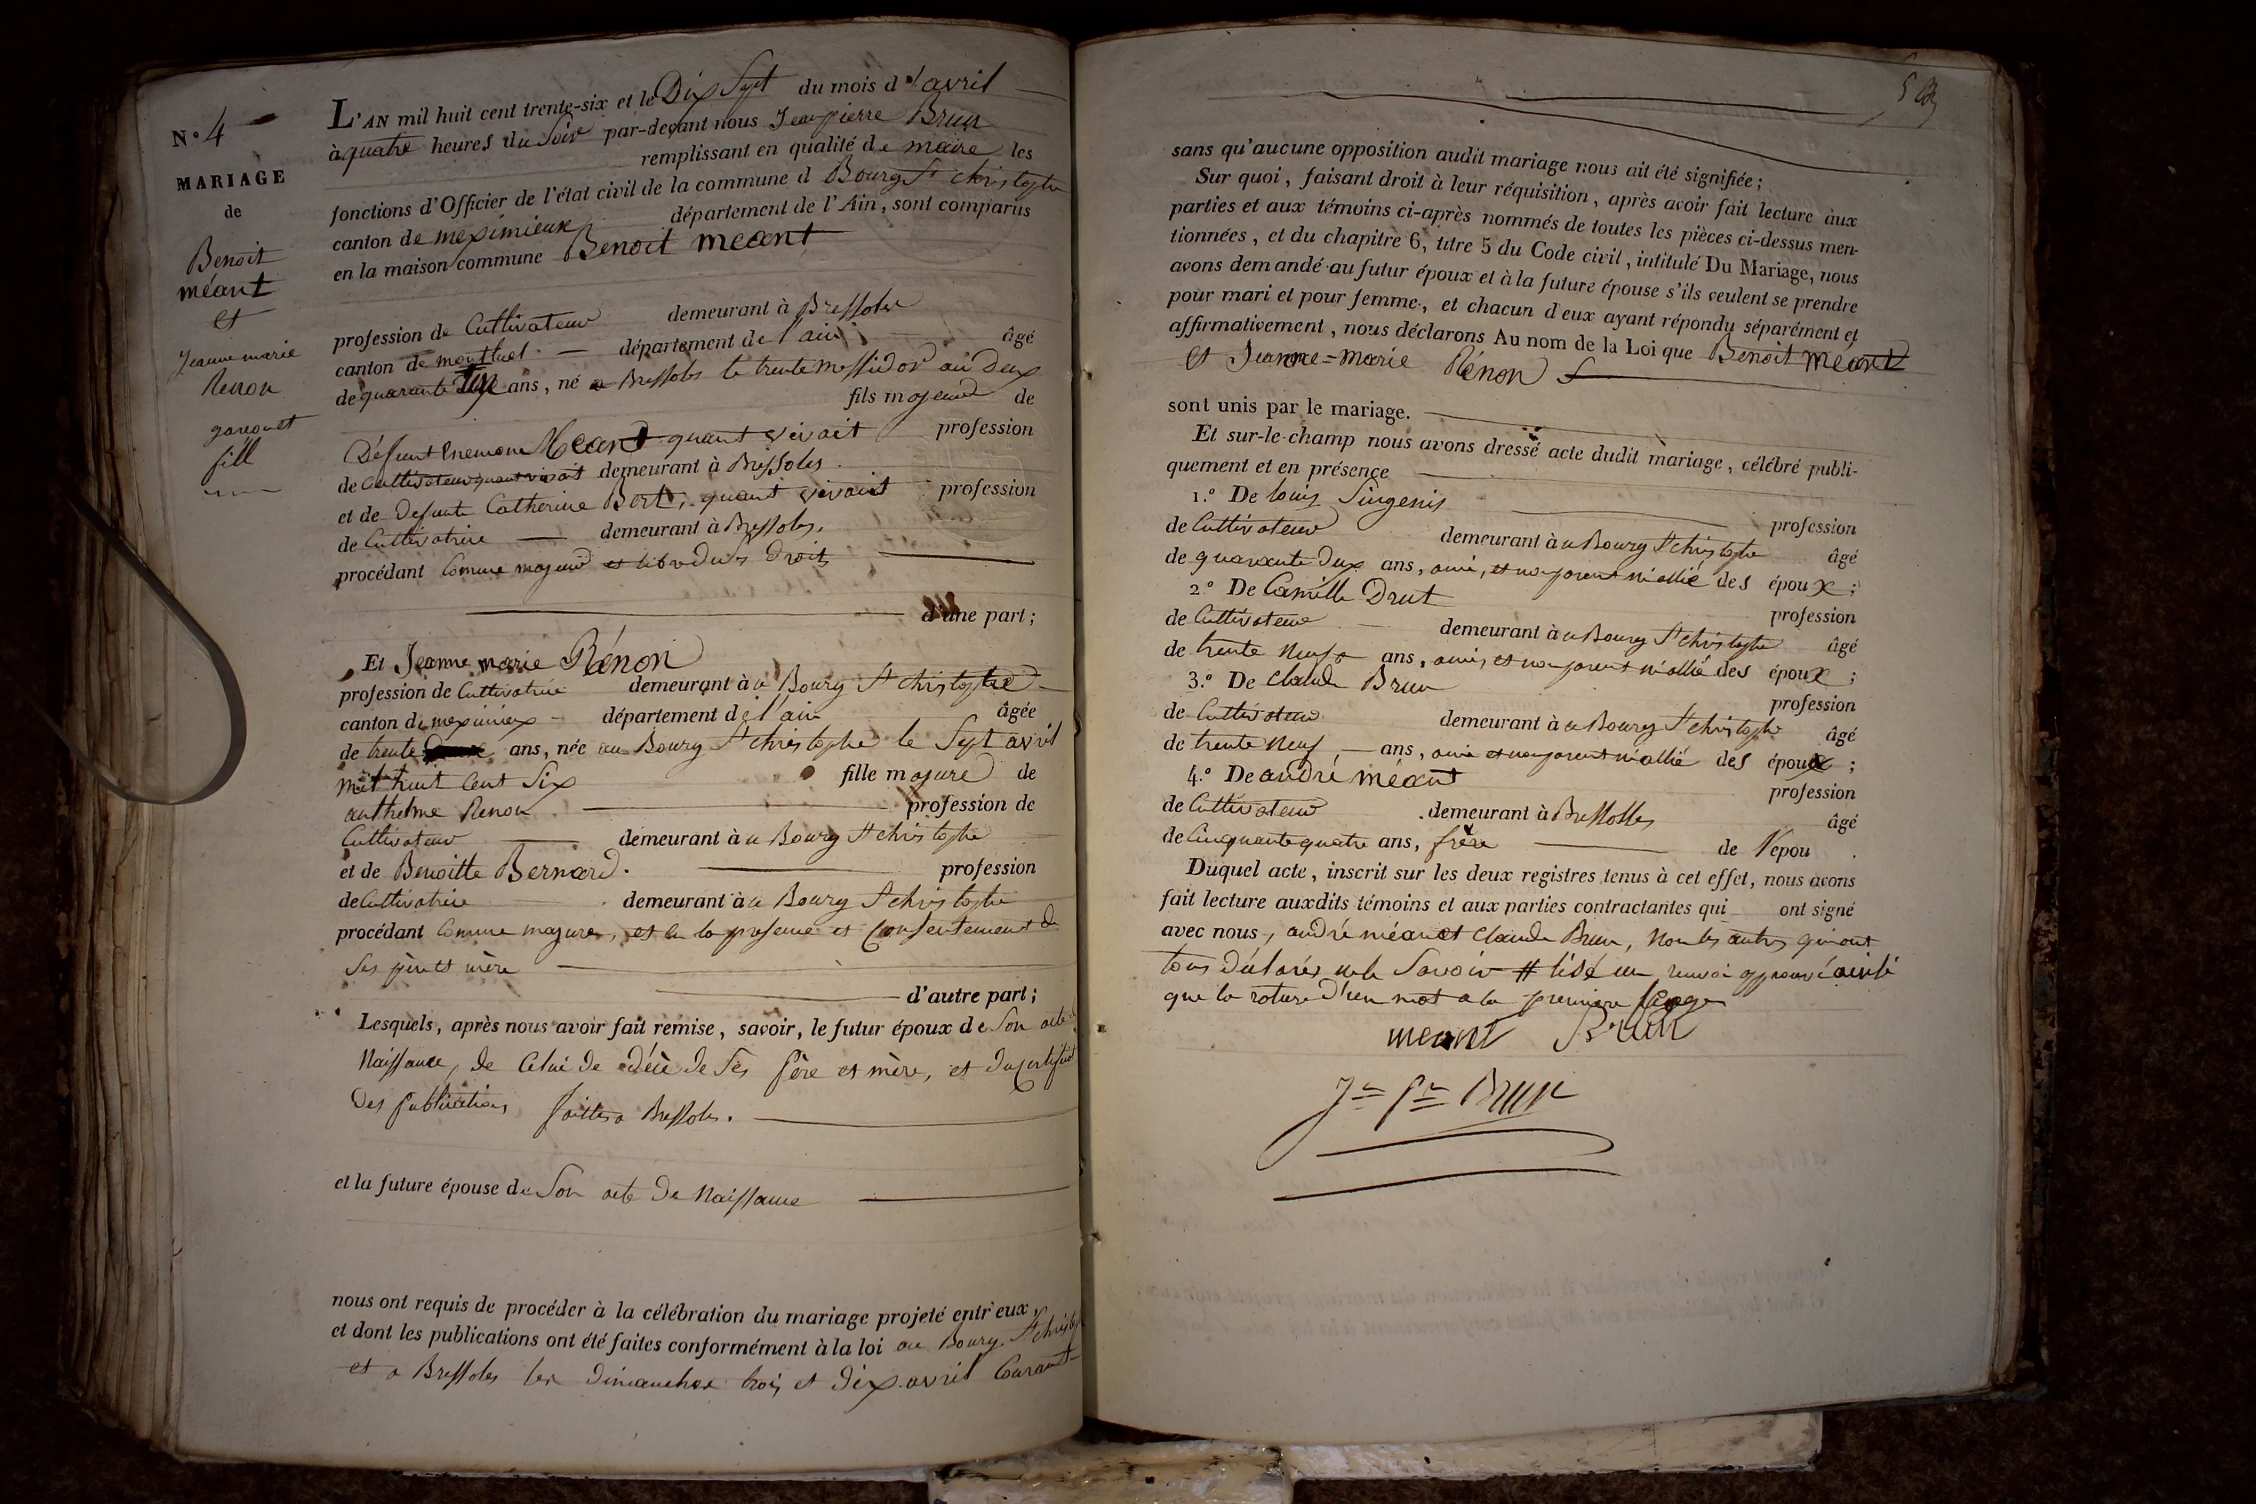 N.° 4
MARIAGE
de
Benoit
méant
et
Jeanne marie
Renon
garçon et
fille
L'AN mil huit cent trente-six et le Dix Sept du mois d'avril
à quatre heures du Soir par-devant nous Jean pierre Brun
remplissant en qualité de maire les
fonctions d'Officier de l'état civil de la commune d Bourg St christophe
canton de meximieux département de l'Ain, sont comparus
en la maison commune Benoit meant
profession de Cultivateur demeurant à Bressoles
canton de montluel département de l'ain âgé
de quarante un ans, né a Bressoles le trente messidor an Deux
fils majeur de
Défunt Enemone Meant quant vivait profession
de Cultivateur quant vivait demeurant à Bressoles.
et de Defunte Catherine Bert, quant vivait profession
de Cultivatrice demeurant à Bressoles.
procédant Comme majeur et libre de ses Droits
d'une part;
Et Jeanne marie Rénon
profession de Cultivatrice demeurant à u Bourg St christophe
canton de meximieux département de l'ain âgée
de trente ans, née au Bourg St christophe le Sept avril
mil huit cent Six fille majure de
anthelme Renon profession de
Cultivateur demeurant à u Bourg St christophe
et de Benoitte Bernard. profession
de Cultivatrice demeurant à u Bourg St christophe
procédant Comme majure, et en la presence et Consentement de
Ses père et mère
d'autre part;
Lesquels, après nous avoir fait remise, savoir, le futur époux de Son acte de
Naissance, de Celui de décè de Ses père et mère, et du Certificat
Des publications faittes a Bressoles.
et la future épouse de Son acte De Naissance
nous ont requis de procéder à la célébration du mariage projeté entr'eux,
et dont les publications ont été faites conformément à la loi au Bourg St christophe
et a Bressoles les Dimanches trois et Dix avril Courant
sans qu'aucune opposition audit mariage nous ait été signifiée;
Sur quoi, faisant droit à leur réquisition, après avoir fait lecture aux
parties et aux témoins ci-après nommés de toutes les pièces ci-dessus men-
tionnées, et du chapitre 6, titre 5 du Code civil, intitulé Du Mariage, nous
avons demandé au futur époux et à la future épouse s'ils veulent se prendre
pour mari et pour femme, et chacun d'eux ayant répondu séparément et
affirmativement, nous déclarons Au nom de la Loi que Benoit méant
et Jeanne=marie Rénon
sont unis par le mariage.
Et sur-le-champ nous avons dressé acte dudit mariage, célébré publi-
quement et en présence
1.° De louis Singenis profession
de Cultivateur demeurant à u Bourg St christophe âgé
de quarante Dux ans, ami, et non parent ni allié des époux;
2.° De Camille Drut profession
de Cultivateur demeurant à u Bourg St christophe âgé
de trente Neuf ans, ami, et non parent ni allié des époux;
3.° De Claude Brun profession
de Cultivateur demeurant à u Bourg St christophe âgé
de trente Neuf ans, ami et non parent ni allié des époux;
4.° De andré méant profession
de Cultivateur demeurant à Bressolles âgé
de Cinquante quatre ans, frère de l'épou
Duquel acte, inscrit sur les deux registres tenus à cet effet, nous avons
fait lecture auxdits témoins et aux parties contractantes qui ont signé
avec nous, andré méant et Claude Brun, Non les autres qui ont
tous Déclarés ne le Savoir # un renvoi approuvé ainsi
que la roture D'un mot a la première page
meant Brun
Jn Pre Brun